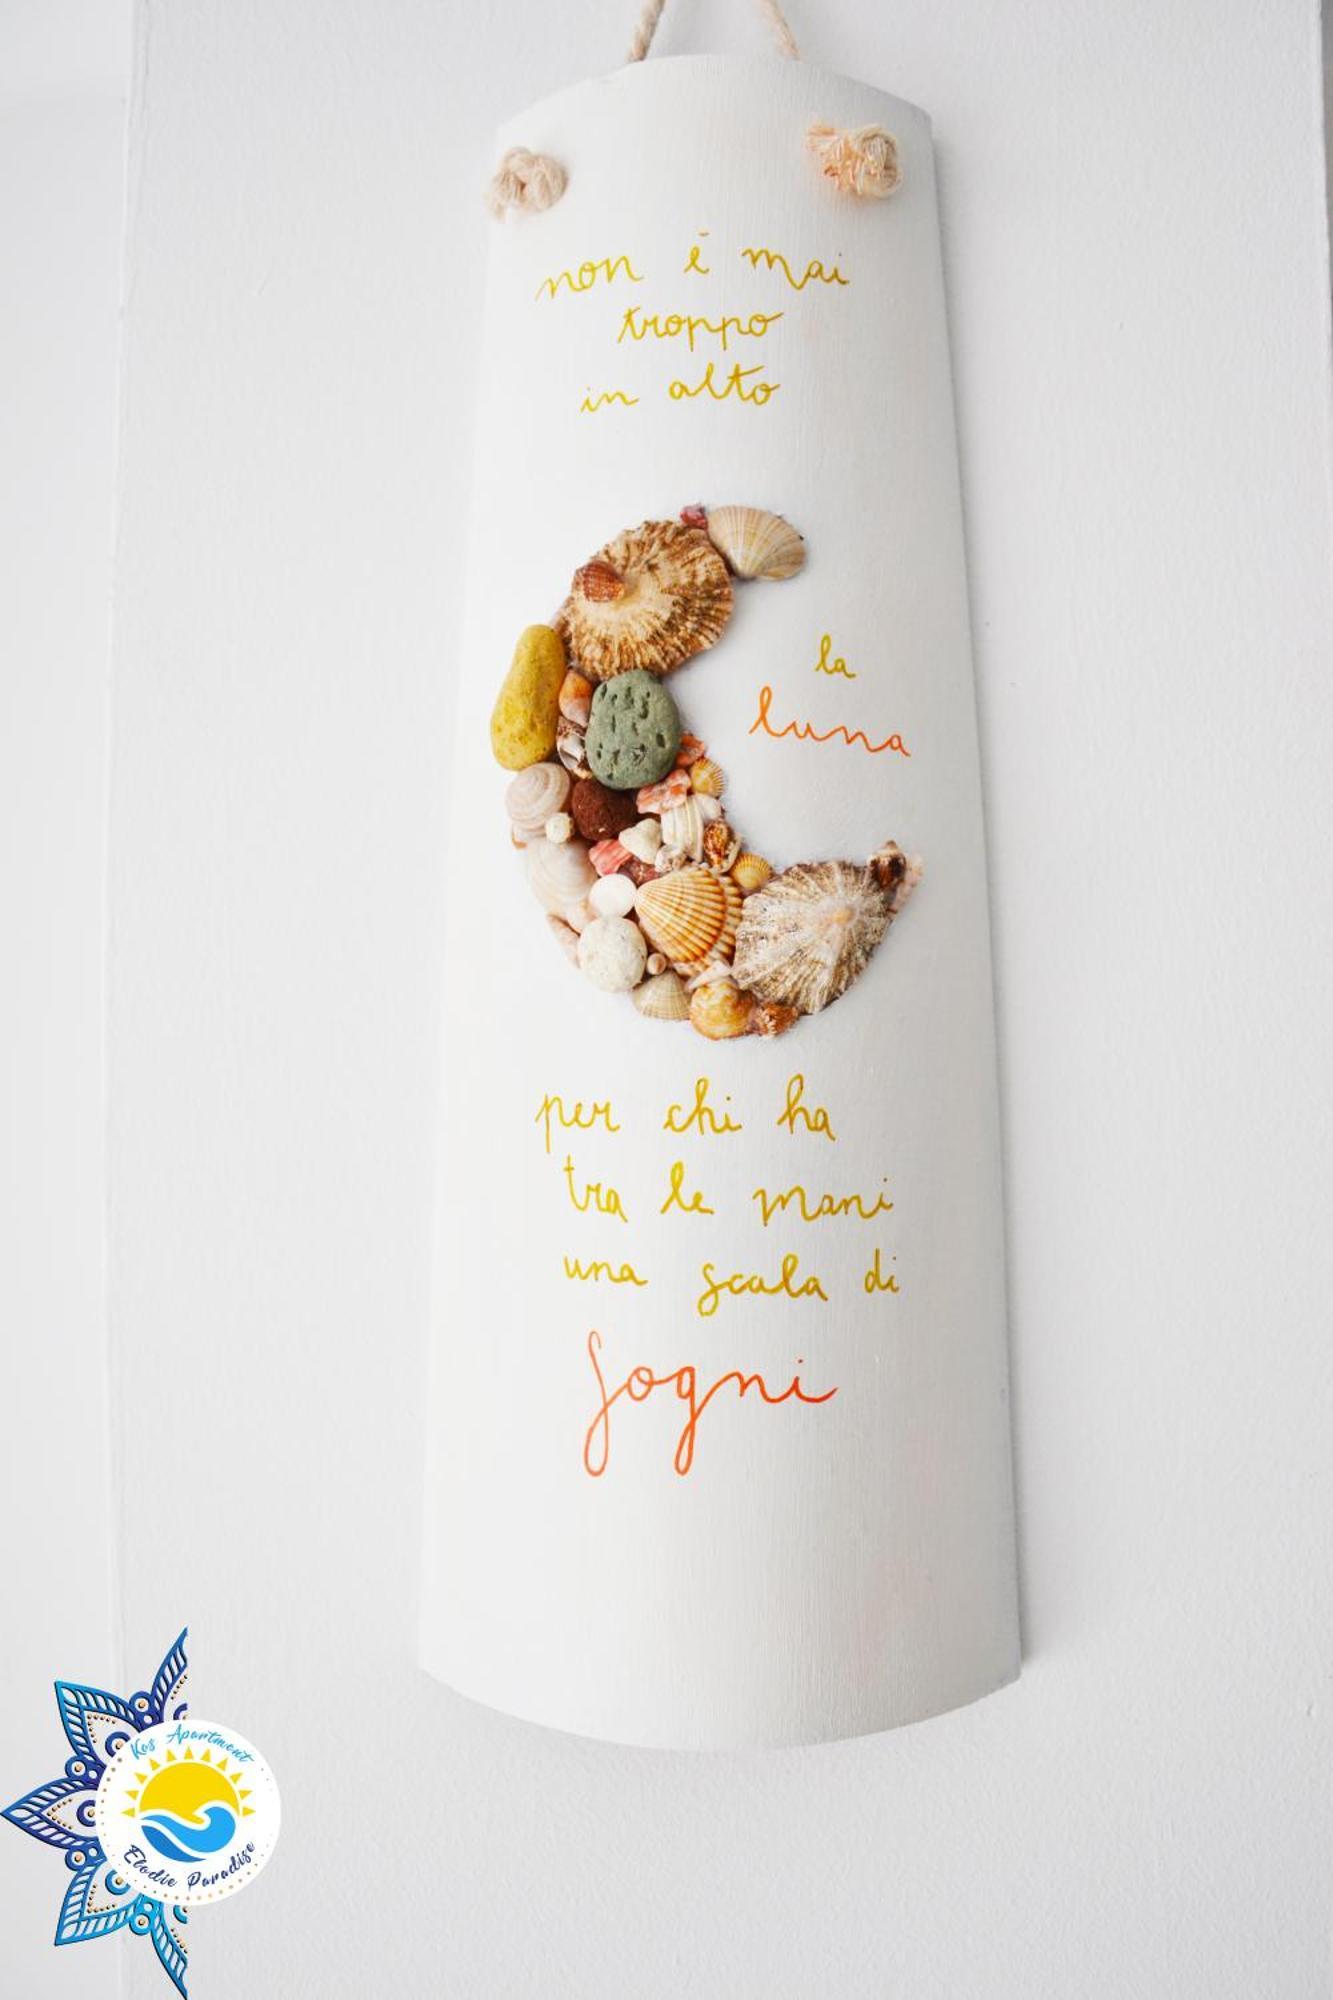 non è mai
troppo
in alto
la
luna
per chi ha
tra le mani
una scala di
sogni
Kos Apartment
Elodie Paradise